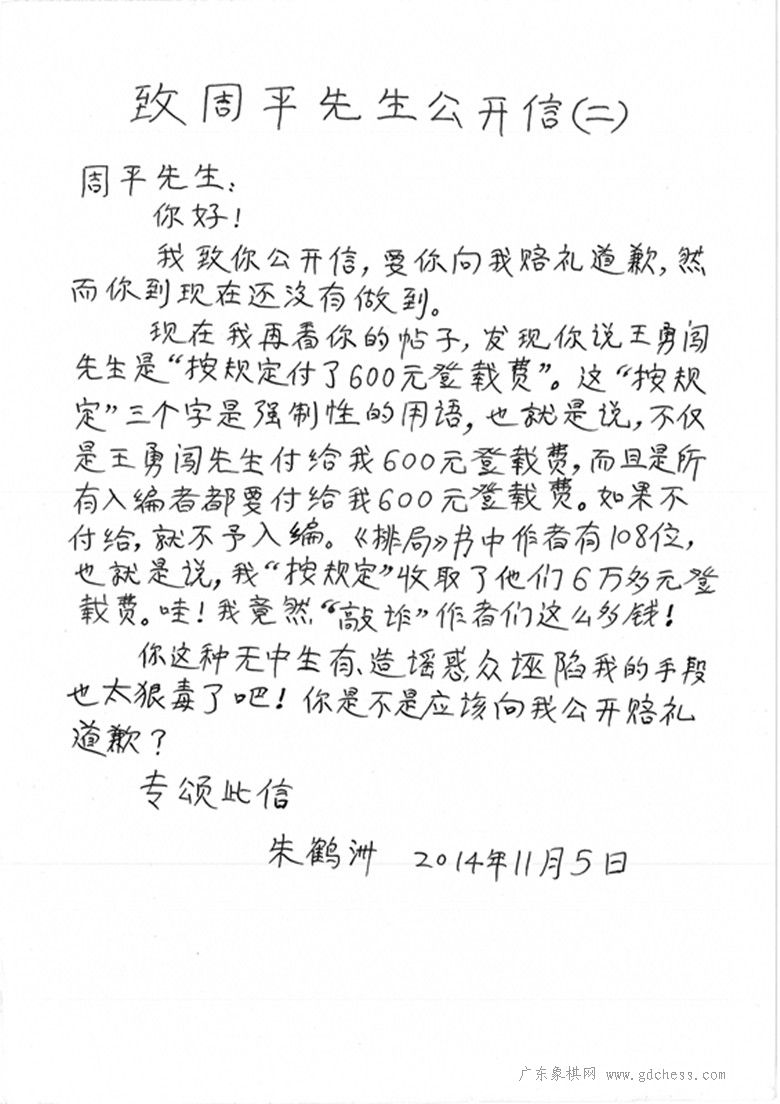 致周平先生公开信(二)
周平先生:
你好!
我致你公开信,要你向我赔礼道歉,然
而你到现在还没有做到。
现在我再看你的帖子,发现你说王勇闯
先生是“按规定付了600元登载费”。这“按规
定”三个字是强制性的用语,也就是说,不仅
是王勇闯先生付给我600元登载费,而且是所
有入编者都要付给我600元登载费。如果不
付给,就不予入编。《排局》书中作者有108位,
也就是说,我“按规定”收取了他们6万多元登
载费。哇!我竟然“敲诈”作者们这么多钱!
你这种无中生有、造谣惑众诬陷我的手段
也太狠毒了吧!你是不是应该向我公开赔礼
道歉?
专颂此信
朱鹤洲 2014年11月5日
广东象棋网 www.gdchess.com